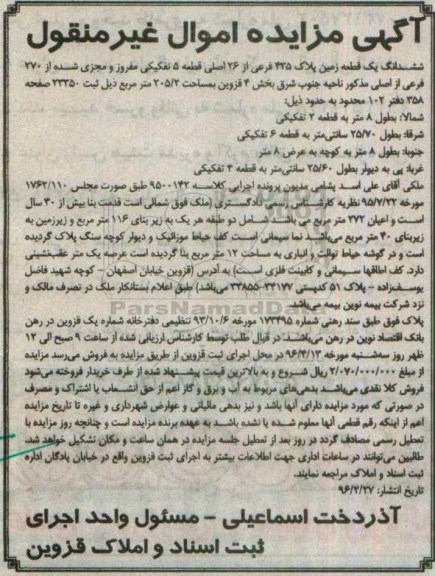 آگهی مزایده اموال غیرمنقول
ششدانگ یک قطعه زمین پلاک ۴۳۵ فرعی از ۲۶ اصلی قطعه ۵ تفکیکی مفروز و مجزی شده از ۲۷۰
فرعی از اصلی مذکور ناحیه جنوب شرق بخش ۴ قزوین بمساحت ۲۰۵/۲ متر مربع ذیل ثبت ۲۳۳۵۰ صفحه
۳۵۸ دفتر ۱۰۲ محدود به حدود ذیل:
شمالا: بطول ۸ متر به قطعه ۲ تفکیکی
شرقا: بطول ۲۵/۷۰ سانتی‌متر به قطعه ۶ تفکیکی
جنوبا: بطول ۸ متر به کوچه به عرض ۸ متر
غربا: پی به دیوار بطول ۲۵/۶۰ سانتی‌متر به قطعه ۴ تفکیکی
ملکی آقای علی اسد پشامی مدیون پرونده اجرایی کلاسه ۹۵۰۰۱۴۲ طبق صورت مجلس ۱۷۶۲/۱۱۰
مورخه ۹۵/۷/۲۲ نظریه کارشناس رسمی دادگستری (ملک فوق شمالی است قدمت بنا بیش از ۳۰ سال
است و اعیان ۲۷۲ متر مربع می باشد شامل دو طبقه هر یک به زیر بنای ۱۱۶ متر مربع و زیرزمین به
زیربنای ۴۰ متر مربع می‌باشد نما سیمانی است کف حیاط موزائیک و دیوار کوچه سنگ پلاک گردیده
است و در گوشه حیاط توالت و انباری به مساحت ۱۲ متر مربع بنا گردیده است عرصه یک متر عقب‌نشینی
دارد کف اطاقها سیمانی و کابینت فلزی است) به آدرس (قزوین خیابان اصفهان - کوچه شهید فاضل
یوسف‌زاده - پلاک ۵۱ کدپستی ۳۳۱۷۷-۳۳۸۵۵ می‌باشد) طبق اعلام بستانکار ملک در تصرف مالک و
نزد شرکت بیمه نوین بیمه می‌باشد.
پلاک فوق طبق سند رهنی شماره ۱۷۳۴۹۵ مورخه ۹۳/۱۰/۶ تنظیمی دفترخانه شماره یک قزوین در رهن
بانک اقتصاد نوین در رهن می‌باشد در قبال طلب توسط کارشناس ارزیابی شده از ساعت ۹ صبح الی ۱۲
ظهر روز سه‌شنبه مورخه ۹۶/۴/۱۳ در محل اجرای ثبت قزوین از طریق مزایده به فروش می‌رسد مزایده
از مبلغ ۲/۰۷۰/۰۰۰/۰۰۰ ریال شروع و به بالاترین قیمت پیشنهاد شده از طرف خریدار فروخته می‌شود
فروش کلا نقدی می‌باشد بدهی‌های مربوط به آب و برق و گاز اعم از حق انشعاب یا اشتراک و مصرف
در صورتی که مورد مزایده دارای آنها باشد و نیز بدهی مالیاتی و عوارض شهرداری و غیره تا تاریخ مزایده
اعم از اینکه رقم قطعی آنها معلوم شده یا نشده باشد به عهده برنده مزایده است و چنانچه روز مزایده با
تعطیل رسمی مصادف گردد در روز بعد از تعطیل جلسه مزایده در همان ساعت و مکان تشکیل خواهد شد
طالبین می‌توانند در ساعات اداری جهت اطلاعات بیشتر به اجرای ثبت قزوین واقع در خیابان پادگان اداره
ثبت اسناد و املاک مراجعه نمایند.
تاریخ انتشار: ۹۶/۲/۲۷
آذردخت اسماعیلی - مسئول واحد اجرای
ثبت اسناد و املاک قزوین
ParsNamadData